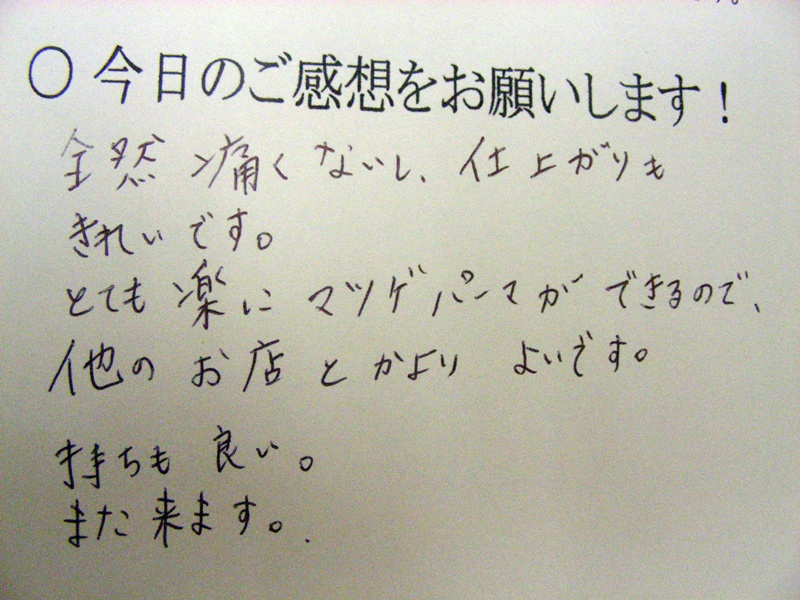 ○ 今日のご感想をお願いします！
全然痛くないし、仕上がりも
きれいです。
とても楽にマツゲパーマができるので、
他のお店とかよりよいです。
持ちも良い。
また来ます。